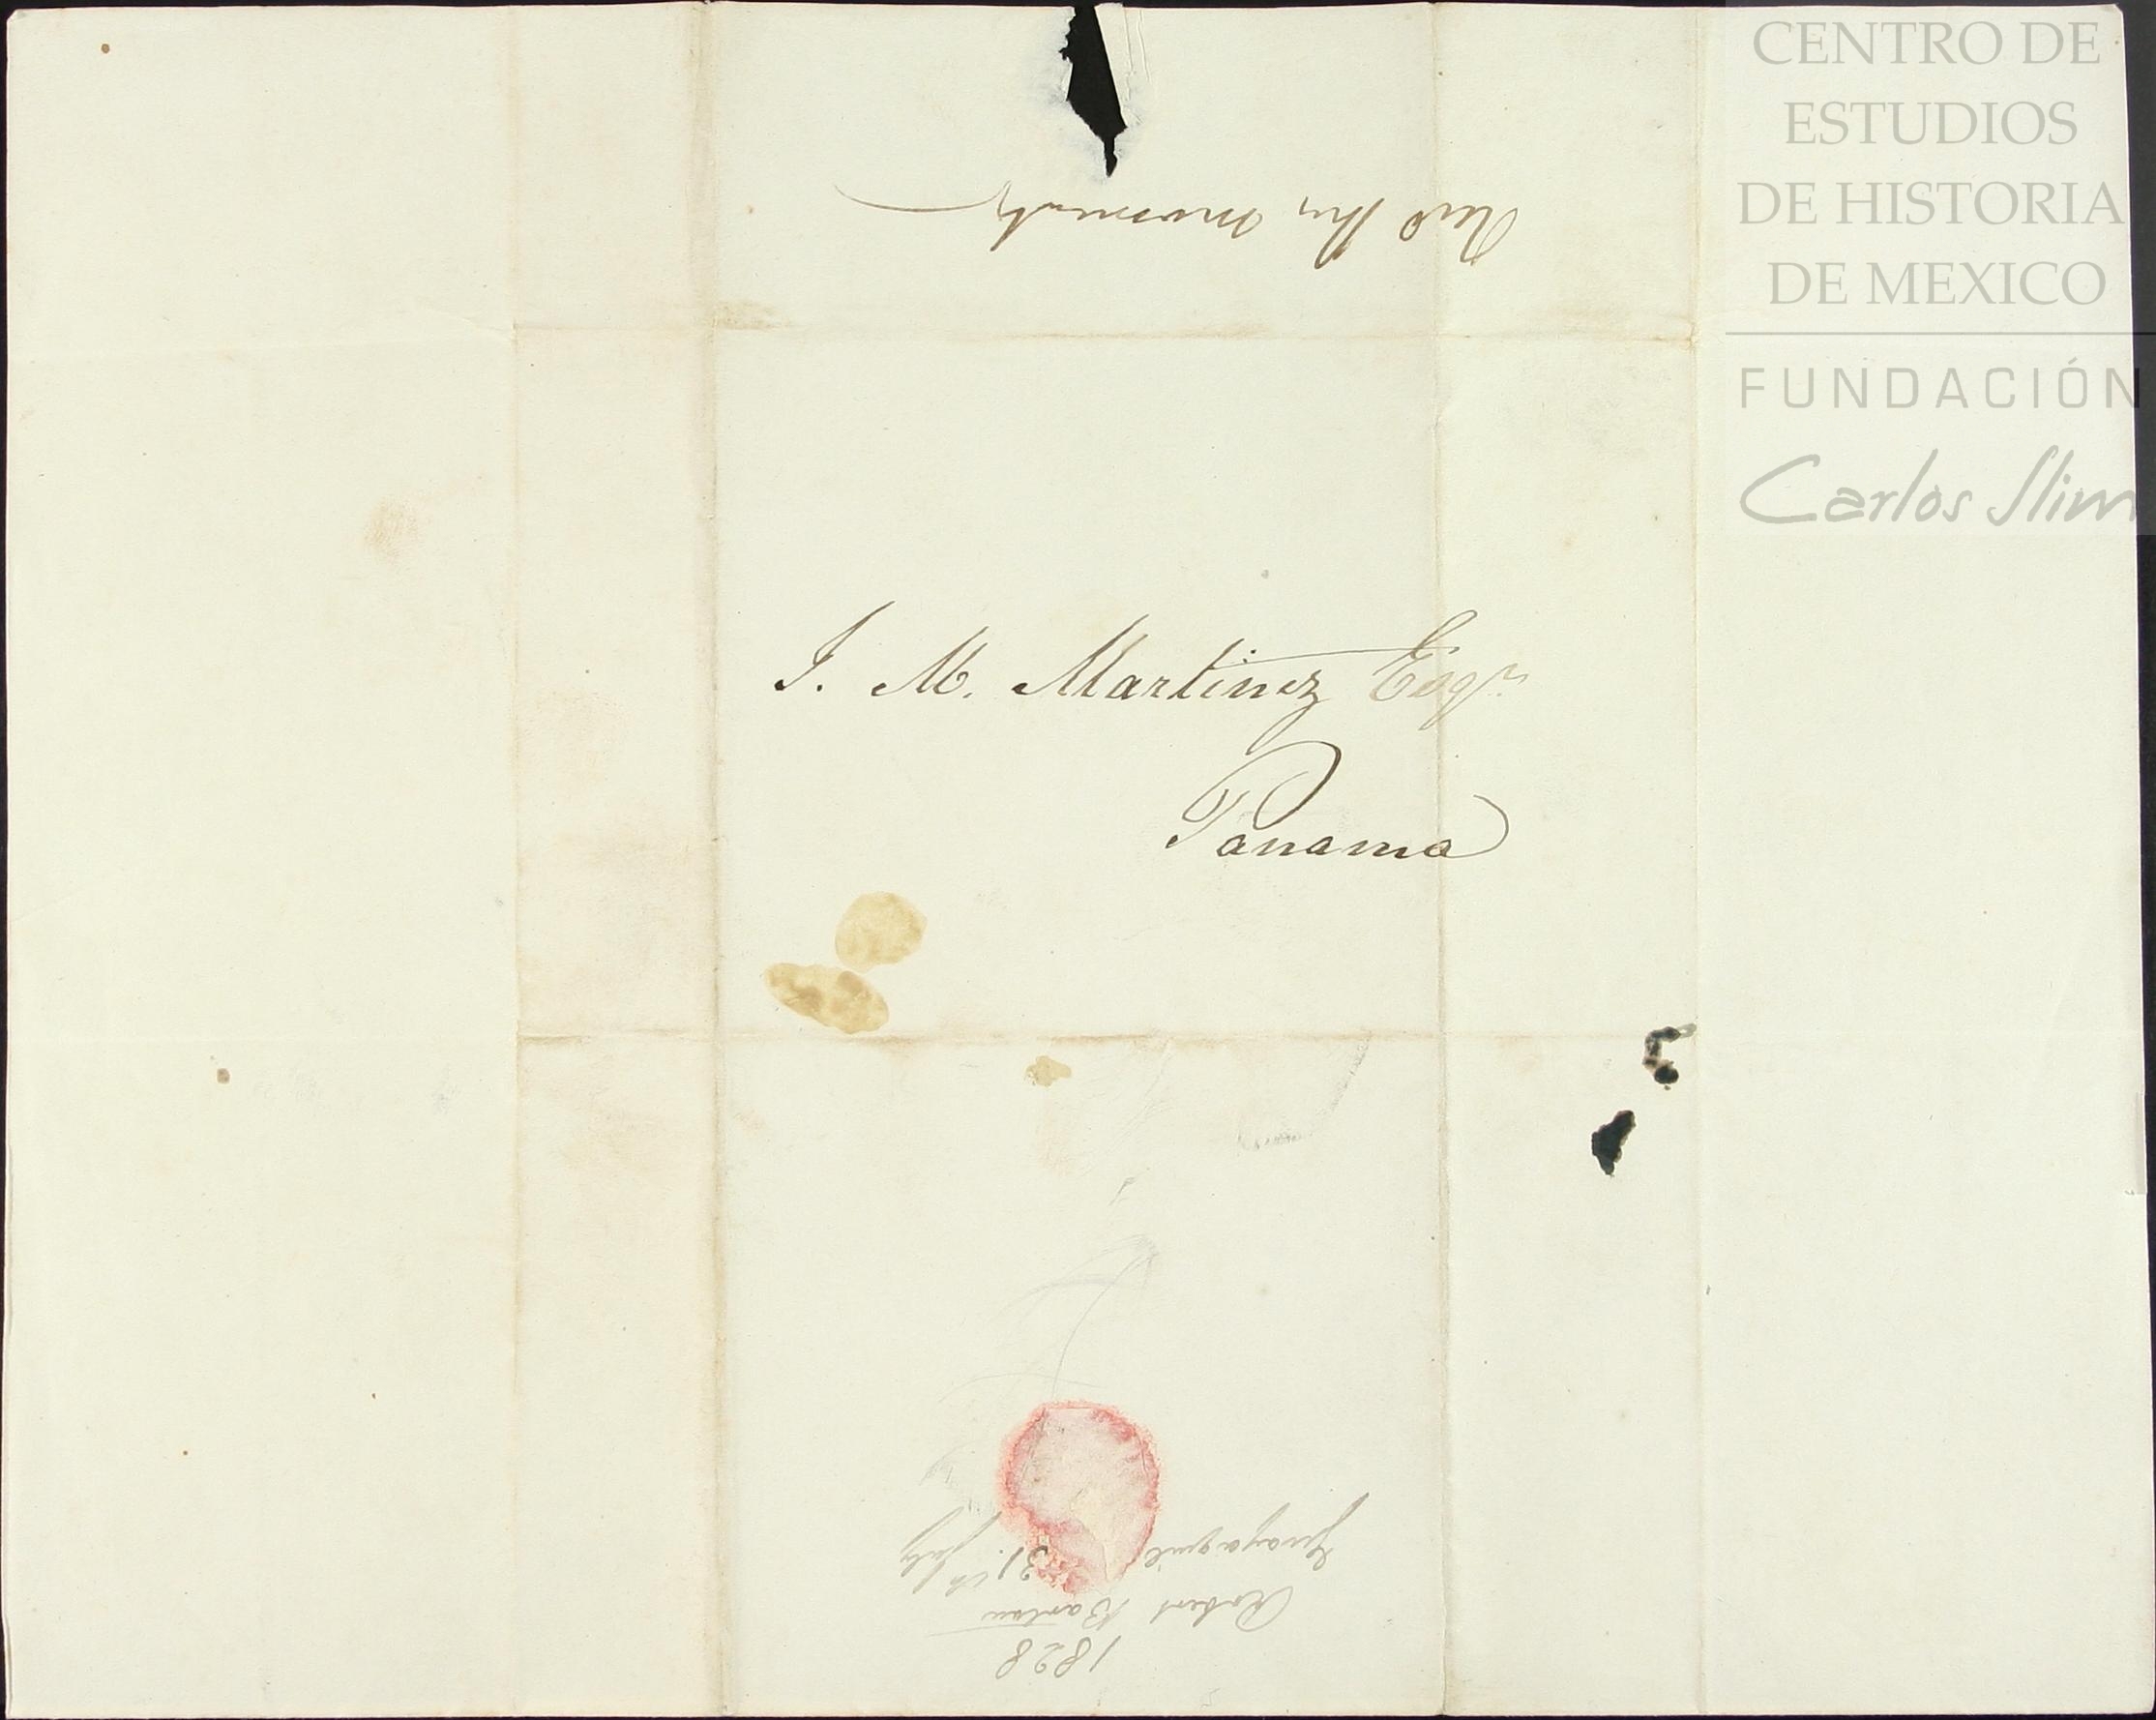 CENTRO DE
ESTUDIOS
DE HISTORIA
DE MEXICO
FUNDACIÓN
Carlos Slim
J. M. Martinez Esqr.
Panama
1828
Robert
Guayaquil 31th July